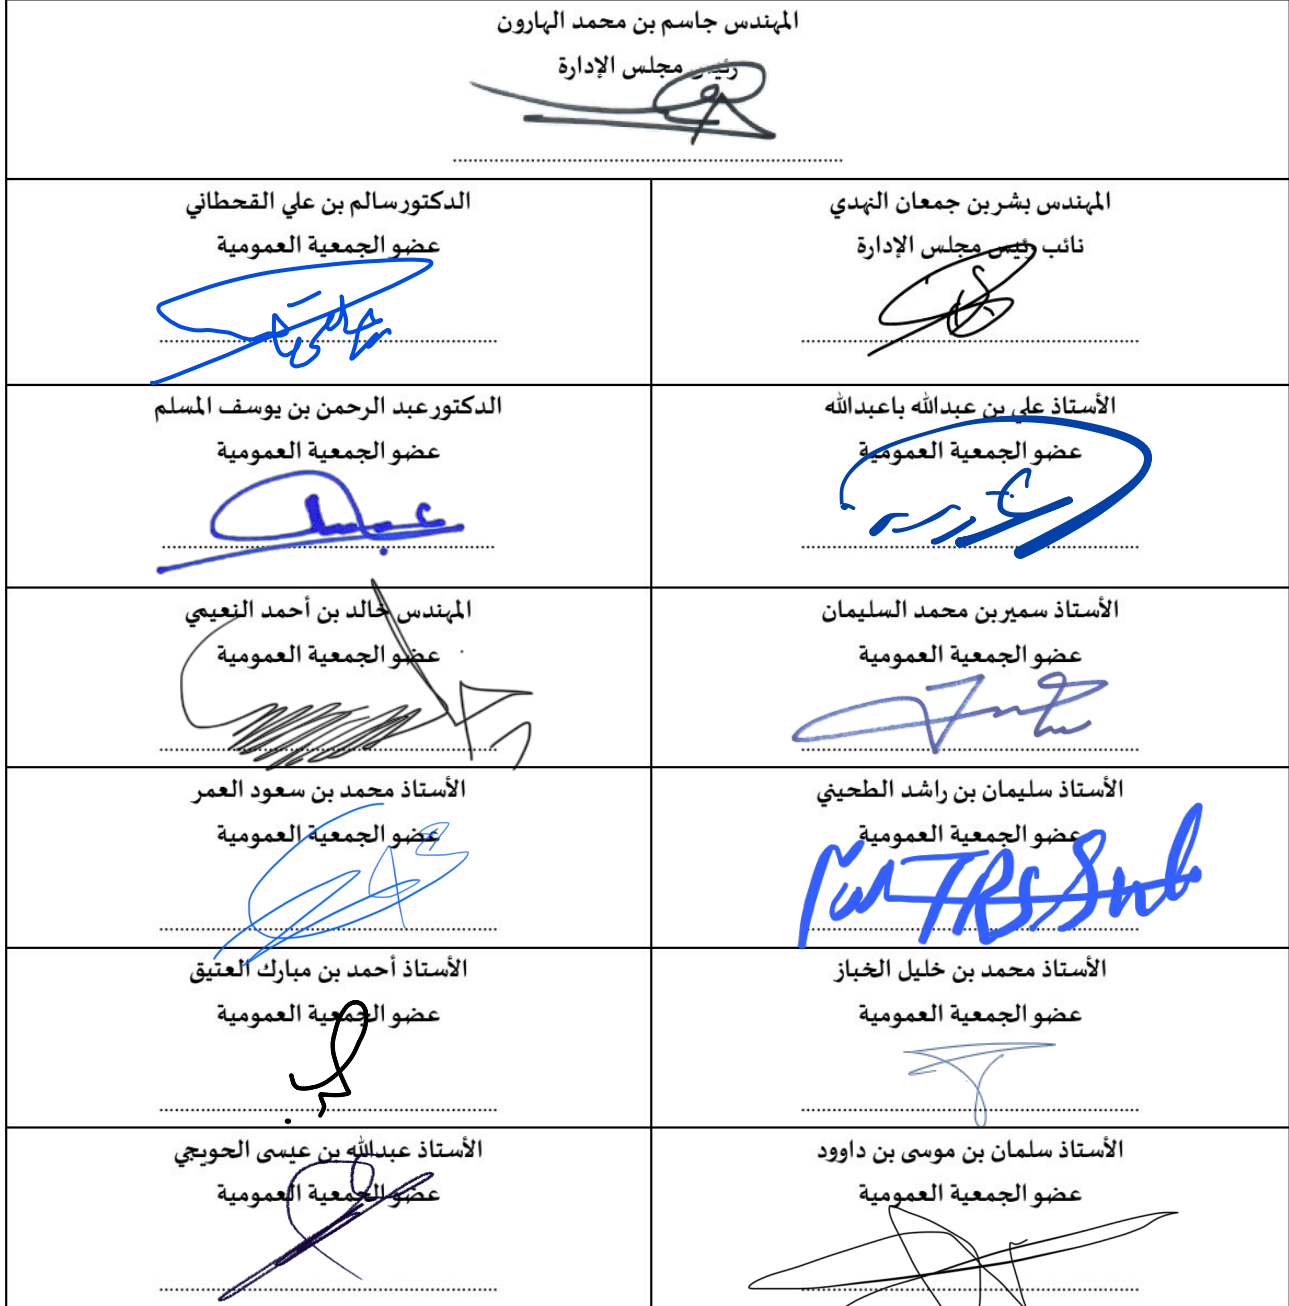 المهندس جاسم بن محمد الهارون
رئيس مجلس الإدارة
المهندس بشر بن جمعان النهدي
نائب رئيس مجلس الإدارة
الدكتور سالم بن علي القحطاني
عضو الجمعية العمومية
الأستاذ علي بن عبدالله باعبدالله
عضو الجمعية العمومية
الدكتور عبد الرحمن بن يوسف المسلم
عضو الجمعية العمومية
الأستاذ سمير بن محمد السليمان
عضو الجمعية العمومية
المهندس خالد بن أحمد النعيمي
عضو الجمعية العمومية
الأستاذ سليمان بن راشد الطحيني
عضو الجمعية العمومية
الأستاذ محمد بن سعود العمر
عضو الجمعية العمومية
الأستاذ محمد بن خليل الخباز
عضو الجمعية العمومية
الأستاذ أحمد بن مبارك العتيق
عضو الجمعية العمومية
الأستاذ سلمان بن موسى بن داوود
عضو الجمعية العمومية
الأستاذ عبدالله بن عيسى الحويجي
عضو الجمعية العمومية